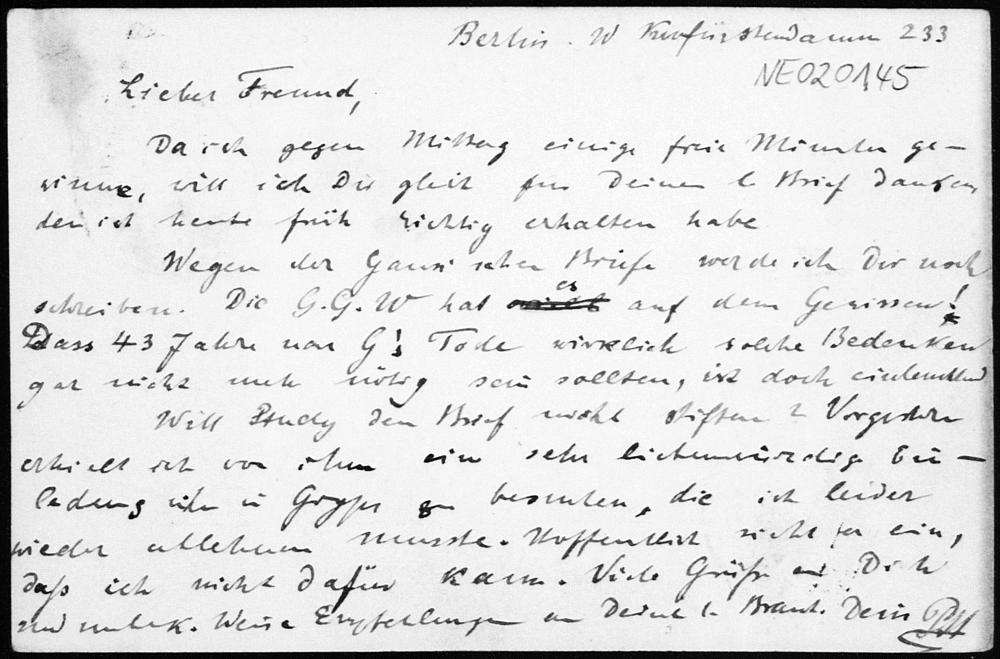 Berlin. W Kurfürstendamm 233
NE020145
Lieber Freund,
Da ich gegen Mittag einige freie Minuten ge-
winne, will ich Dir gleich für Deinen l. Brief danken
den ich heute früh richtig erhalten habe
Wegen der Gauss'schen Briefe werde ich Dir noch
schreiben. Die G.G.W hat es auf dem Gewissen!
Dass 43 Jahre nach G's Tode wirklich solche Bedenken
gar nicht mehr nötig sein sollten, ist doch einleuchtend
Will Study den Brief nicht stiften? Vorgestern
erhielt ich von ihm eine sehr liebenswürdige Ein-
ladung ihn in zu besuchen, die ich leider
wieder ablehnen musste. Hoffentlich sieht er ein,
daß ich nicht dafür kann. Viele Grüße an Dich
und Empfehlungen an Deine l. Braut. Dein